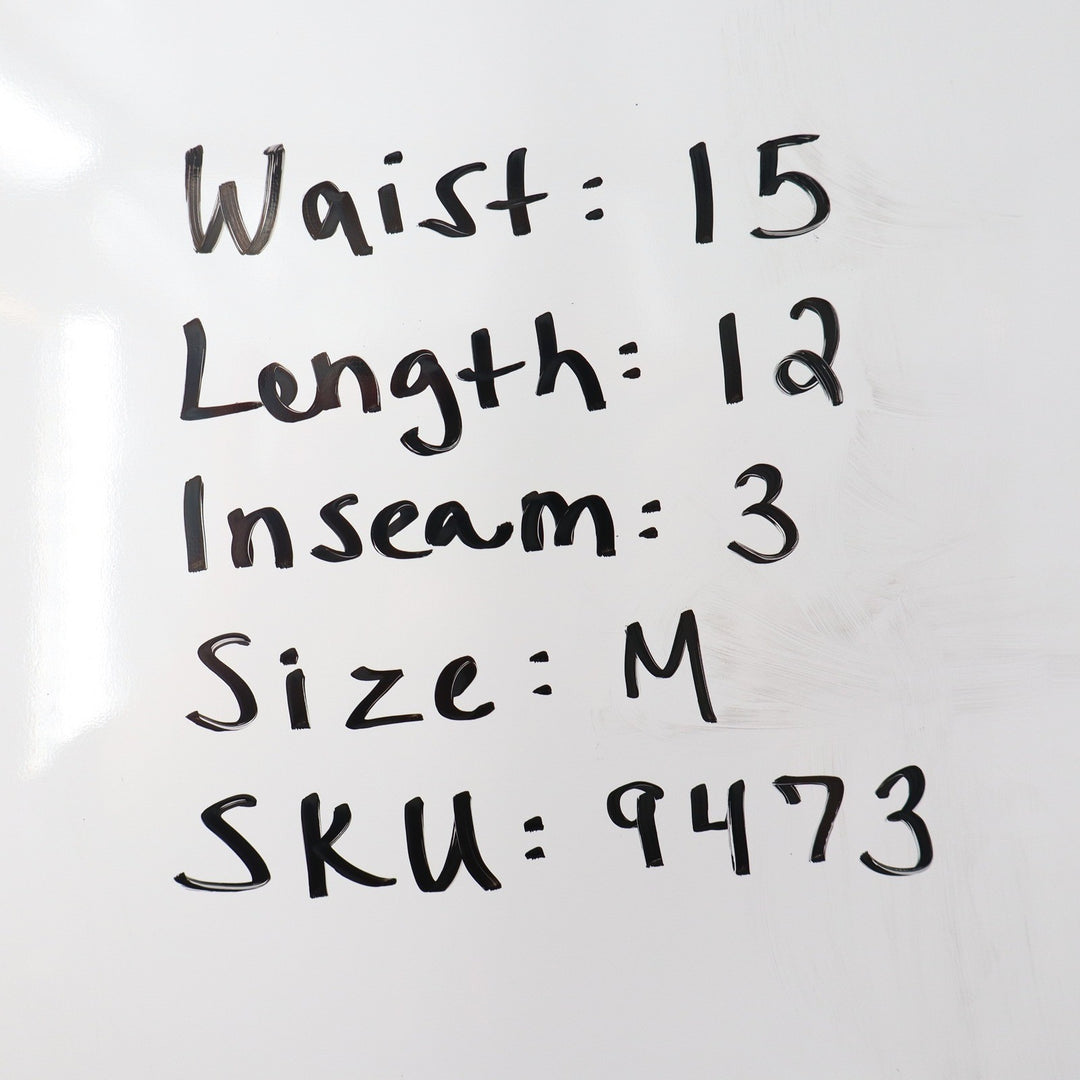 Waist: 15
Length: 12
Inseam: 3
Size: M
SKU: 9473